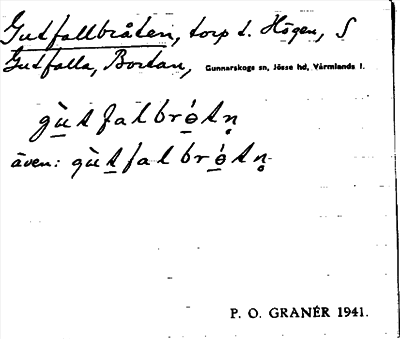 Gutfallbråten, torp t. Högen, S
Gutfalla, Bortan, Gunnarskogs sn, Jösse hd, Värmlands l.
gùtfalbrótn̥
även: gùtfalbrótn̥
P. O. GRANÉR 1941.